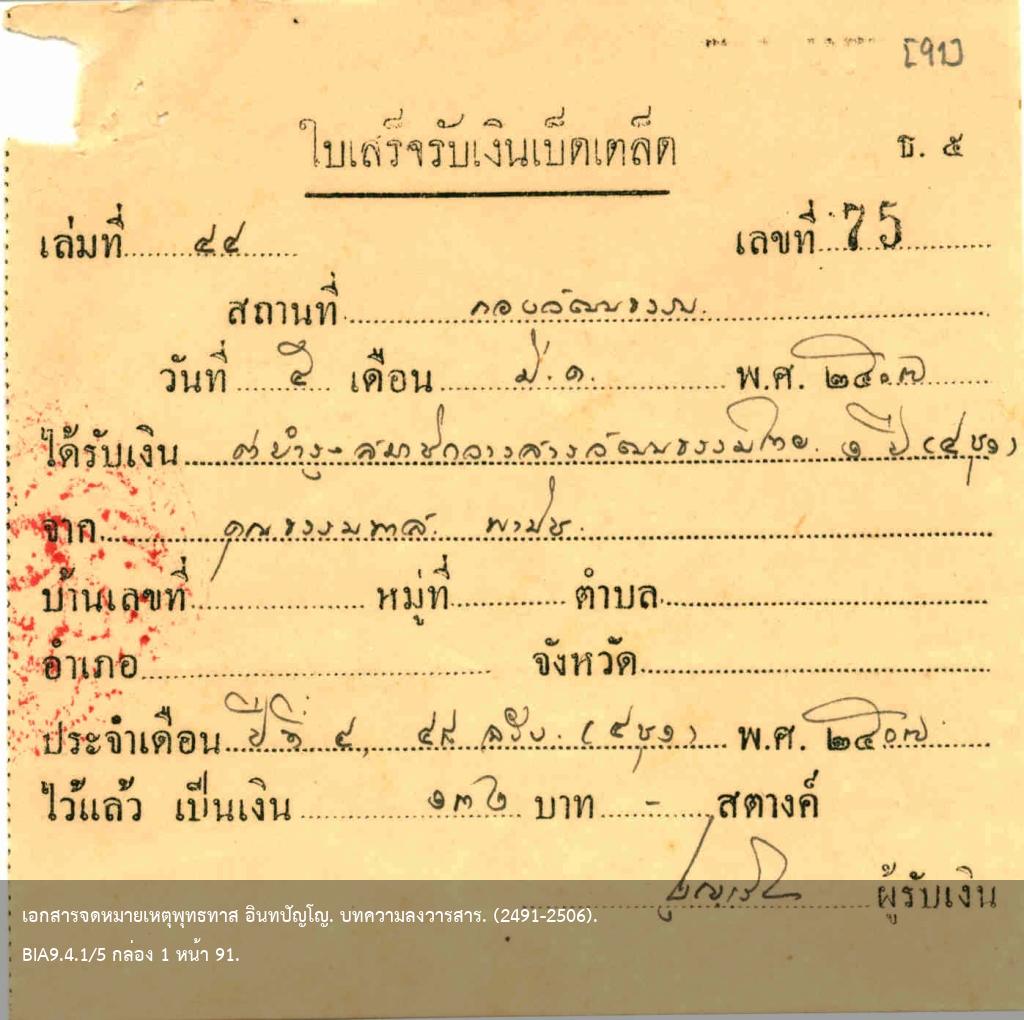 [91]
ใบเสร็จรับเงินเบ็ดเตล็ด ธ. ๕
เล่มที่ ๔๔ เลขที่ 75
สถานที่ กองวัฒนธรรม.
วันที่ ๕ เดือน มี.ค. พ.ศ. ๒๔๐๗
ได้รับเงิน ค่าบำรุงสมาชิกวารสารวัฒนธรรมไทย. ๑ ปี (๔ชุด)
จาก คุณธรรมทาส พานิช.
บ้านเลขที่ หมู่ที่ ตำบล
อำเภอ จังหวัด
ประจำเดือน ปีที่ ๔, ฉบับ (๔ชุด) พ.ศ. ๒๔๐๗
ไว้แล้ว เป็นเงิน ๑๓๖ บาท - สตางค์
ผู้รับเงิน
เอกสารจดหมายเหตุพุทธทาส อินทปัญโญ. บทความลงวารสาร. (2491-2506).
BIA9.4.1/5 กล่อง 1 หน้า 91.